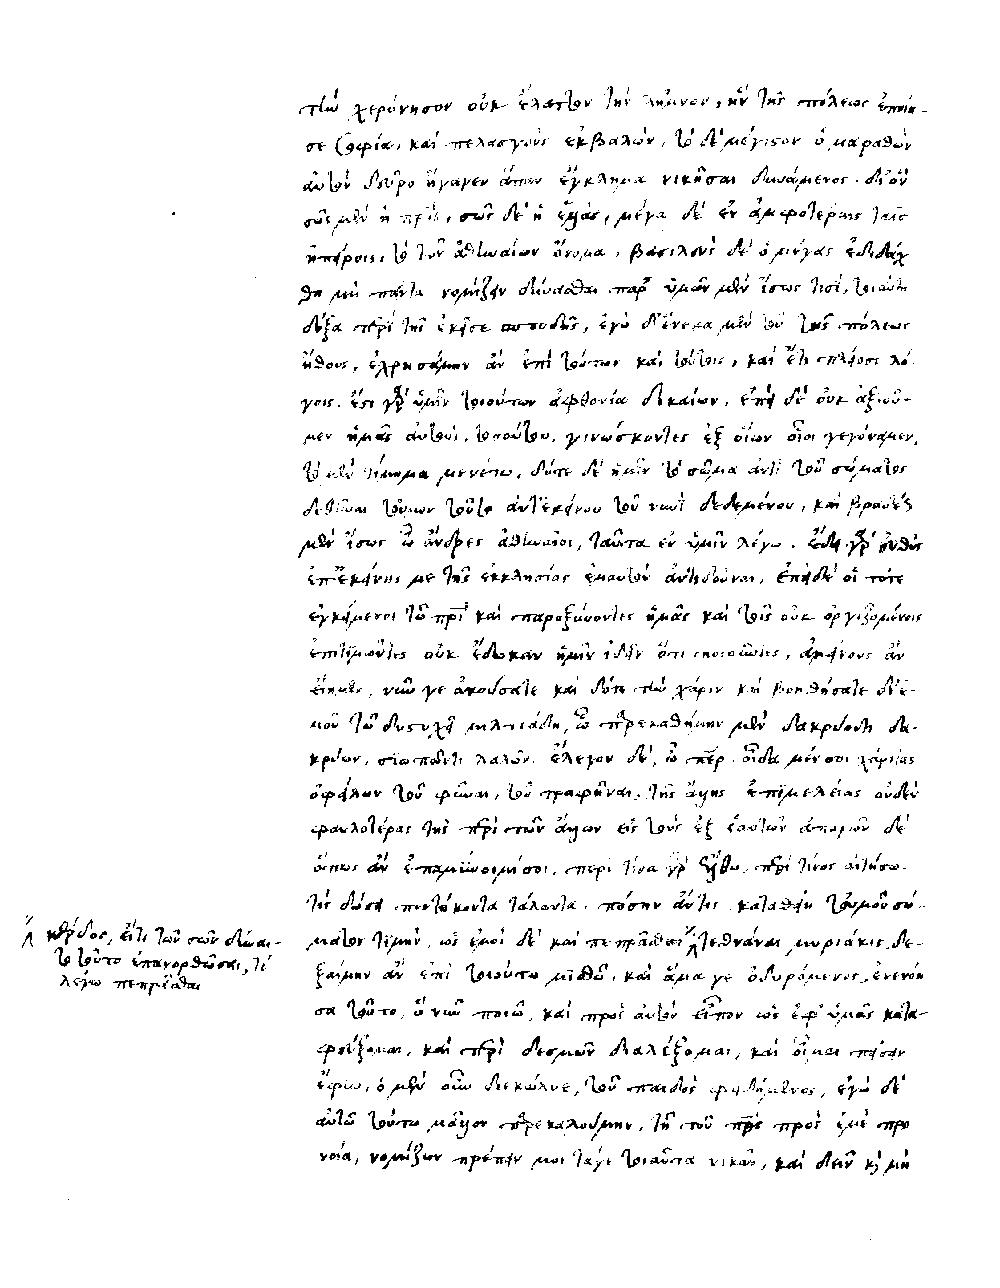 τὴν χερόνησον οὐκ ἔλαττον τῆς λήμνου, ἣν τῆς πόλεως ἐποίη-
σε σοφία, καὶ πελασγοὺς ἐκβαλών, τὸ δὲ μέγιστον ὁ μαραθὼν
αὐτὸν δεῦρο ἤγαγεν ἅπαν ἔγκλημα νικῆσαι δυνάμενος. δι' ὃν
σῶς μὲν ἡ πρὶς, σῶς δὲ ἡ ἑλλὰς, μέγα δὲ ἐν ἀμφοτέραις ταῖς
ἠπείροις, τὸ τῶν ἀθηναίων ὄνομα, βασιλεὺς δὲ ὁ μέγας ἐδιδάχ
θη μὴ πάντα νομίζειν δύνασθαι παρ' ὑμῶν μὲν ἴσως τισὶ, τοιαύτη
δόξα περὶ τῆς ἐκεῖσε σπουδῆς, ἐγὼ δ' ἕνεκα μὲν τοῦ τῆς πόλεως
ἤθους, ἐχρησάμην ἂν ἐπὶ τούτων καὶ τούτοις, καὶ ἔτι πλείοσι λό-
γοις. ἔστι γὰρ ὑμῖν τοιούτων ἀφθονία δικαίων, ἐπεὶ δὲ οὐκ ἀξιοῦ-
μεν ἡμᾶς αὐτοὺς, τοσούτου, γινώσκοντες ἐξ οἵων οἷοι γεγόναμεν,
τὸ μὲν τίμημα μενέτω, δότε δὲ ἡμῖν τὸ σῶμα ἀντὶ τοῦ σώματος
δεθῆναι τοὐμὸν τοῦτο ἀντ' ἐκείνου τοῦ νυνὶ δεδεμένου, καὶ βραδὺς
μὲν ἴσως ὦ ἄνδρες ἀθηναῖοι, ταῦτα ἐν ὑμῖν λέγω. ἔδει γὰρ εὐθὺς
ἐπ' ἐκείνης με τῆς ἐκκλησίας ἐμαυτὸν ἀντιδοῦναι, ἐπεὶ δὲ οἱ τότε
ἐγκείμενοι τῶ πρὶ καὶ παροξύνοντες ἡμᾶς καὶ τοῖς οὐκ ὀργιζομένοις
ἐπιτιμῶντες οὐκ ἔδωκαν ἡμῖν ἰδεῖν ὅτι ποιοῦντες, ἀμείνους ἂν
εἴημεν, νῦν γε ἀκούσατε καὶ δότε τὴν χάριν καὶ βοηθήσατε δι' ἐ-
μοῦ τῶ δυστυχεῖ μιλτιάδη, ὧ παρεκαθήμην μὲν δακρύοντι δα-
κρύων, σιωπῶντι λαλῶν. ἔλεγον δὲ, ὦ πάτερ. οἶδα μέν σοι χάριτας
ὀφείλων τοῦ φῦναι, τοῦ τραφῆναι, τῆς ἄλλης ἐπιμελείας οὐδὲν
φαυλοτέρας τῆς περὶ τῶν ἄλλων εἰς τοὺς ἐξ ἑαυτῶν ἀπορῶν δὲ
ὅπως ἂν ἐπαμύνοιμί σοι, περὶ τίνα γὰρ ἔλθω, περὶ τίνος αἰτήσω.
τίς δώσει πεντήκοντα τάλαντα. πόσην ἄν τις καταθείη τοὐμοῦ σώ-
ματος τιμὴν, ὡς ἐμοὶ δὲ καὶ πεπρᾶσθαι τεθνάναι μυριάκις δε-
ξαίμην ἂν ἐπὶ τοιούτω μισθῶ, καὶ ἅμα γε ὀδυρόμενος, ἐνενόη
σα τοῦτο, ὃ νῦν ποιῶ, καὶ πρὸς αὐτὸν εἶπον ὡς ἐφ' ὑμᾶς κατα-
φεύξομαι, καὶ περὶ δεσμῶν διαλέξομαι, καὶ οἶμαι πείσειν
ἔφην, ὁ μὲν οὖν διεκώλυε, τοῦ παιδὸς φειδόμενος, ἐγὼ δὲ
αὐτῶ τούτω μᾶλλον παρεκαλούμην, τῆ τοῦ πρς πρὸς ἐμὲ προ
νοία, νομίζων πρέπειν μοι τά γε τοιαῦτα νικᾶν, καὶ δεῖν κὶ μὴ
κέρδος, εἴ τι τῶν σῶν δύναι-
το τοῦτο ἐπανορθῶσαι, τί
λέγω πεπρᾶσθαι